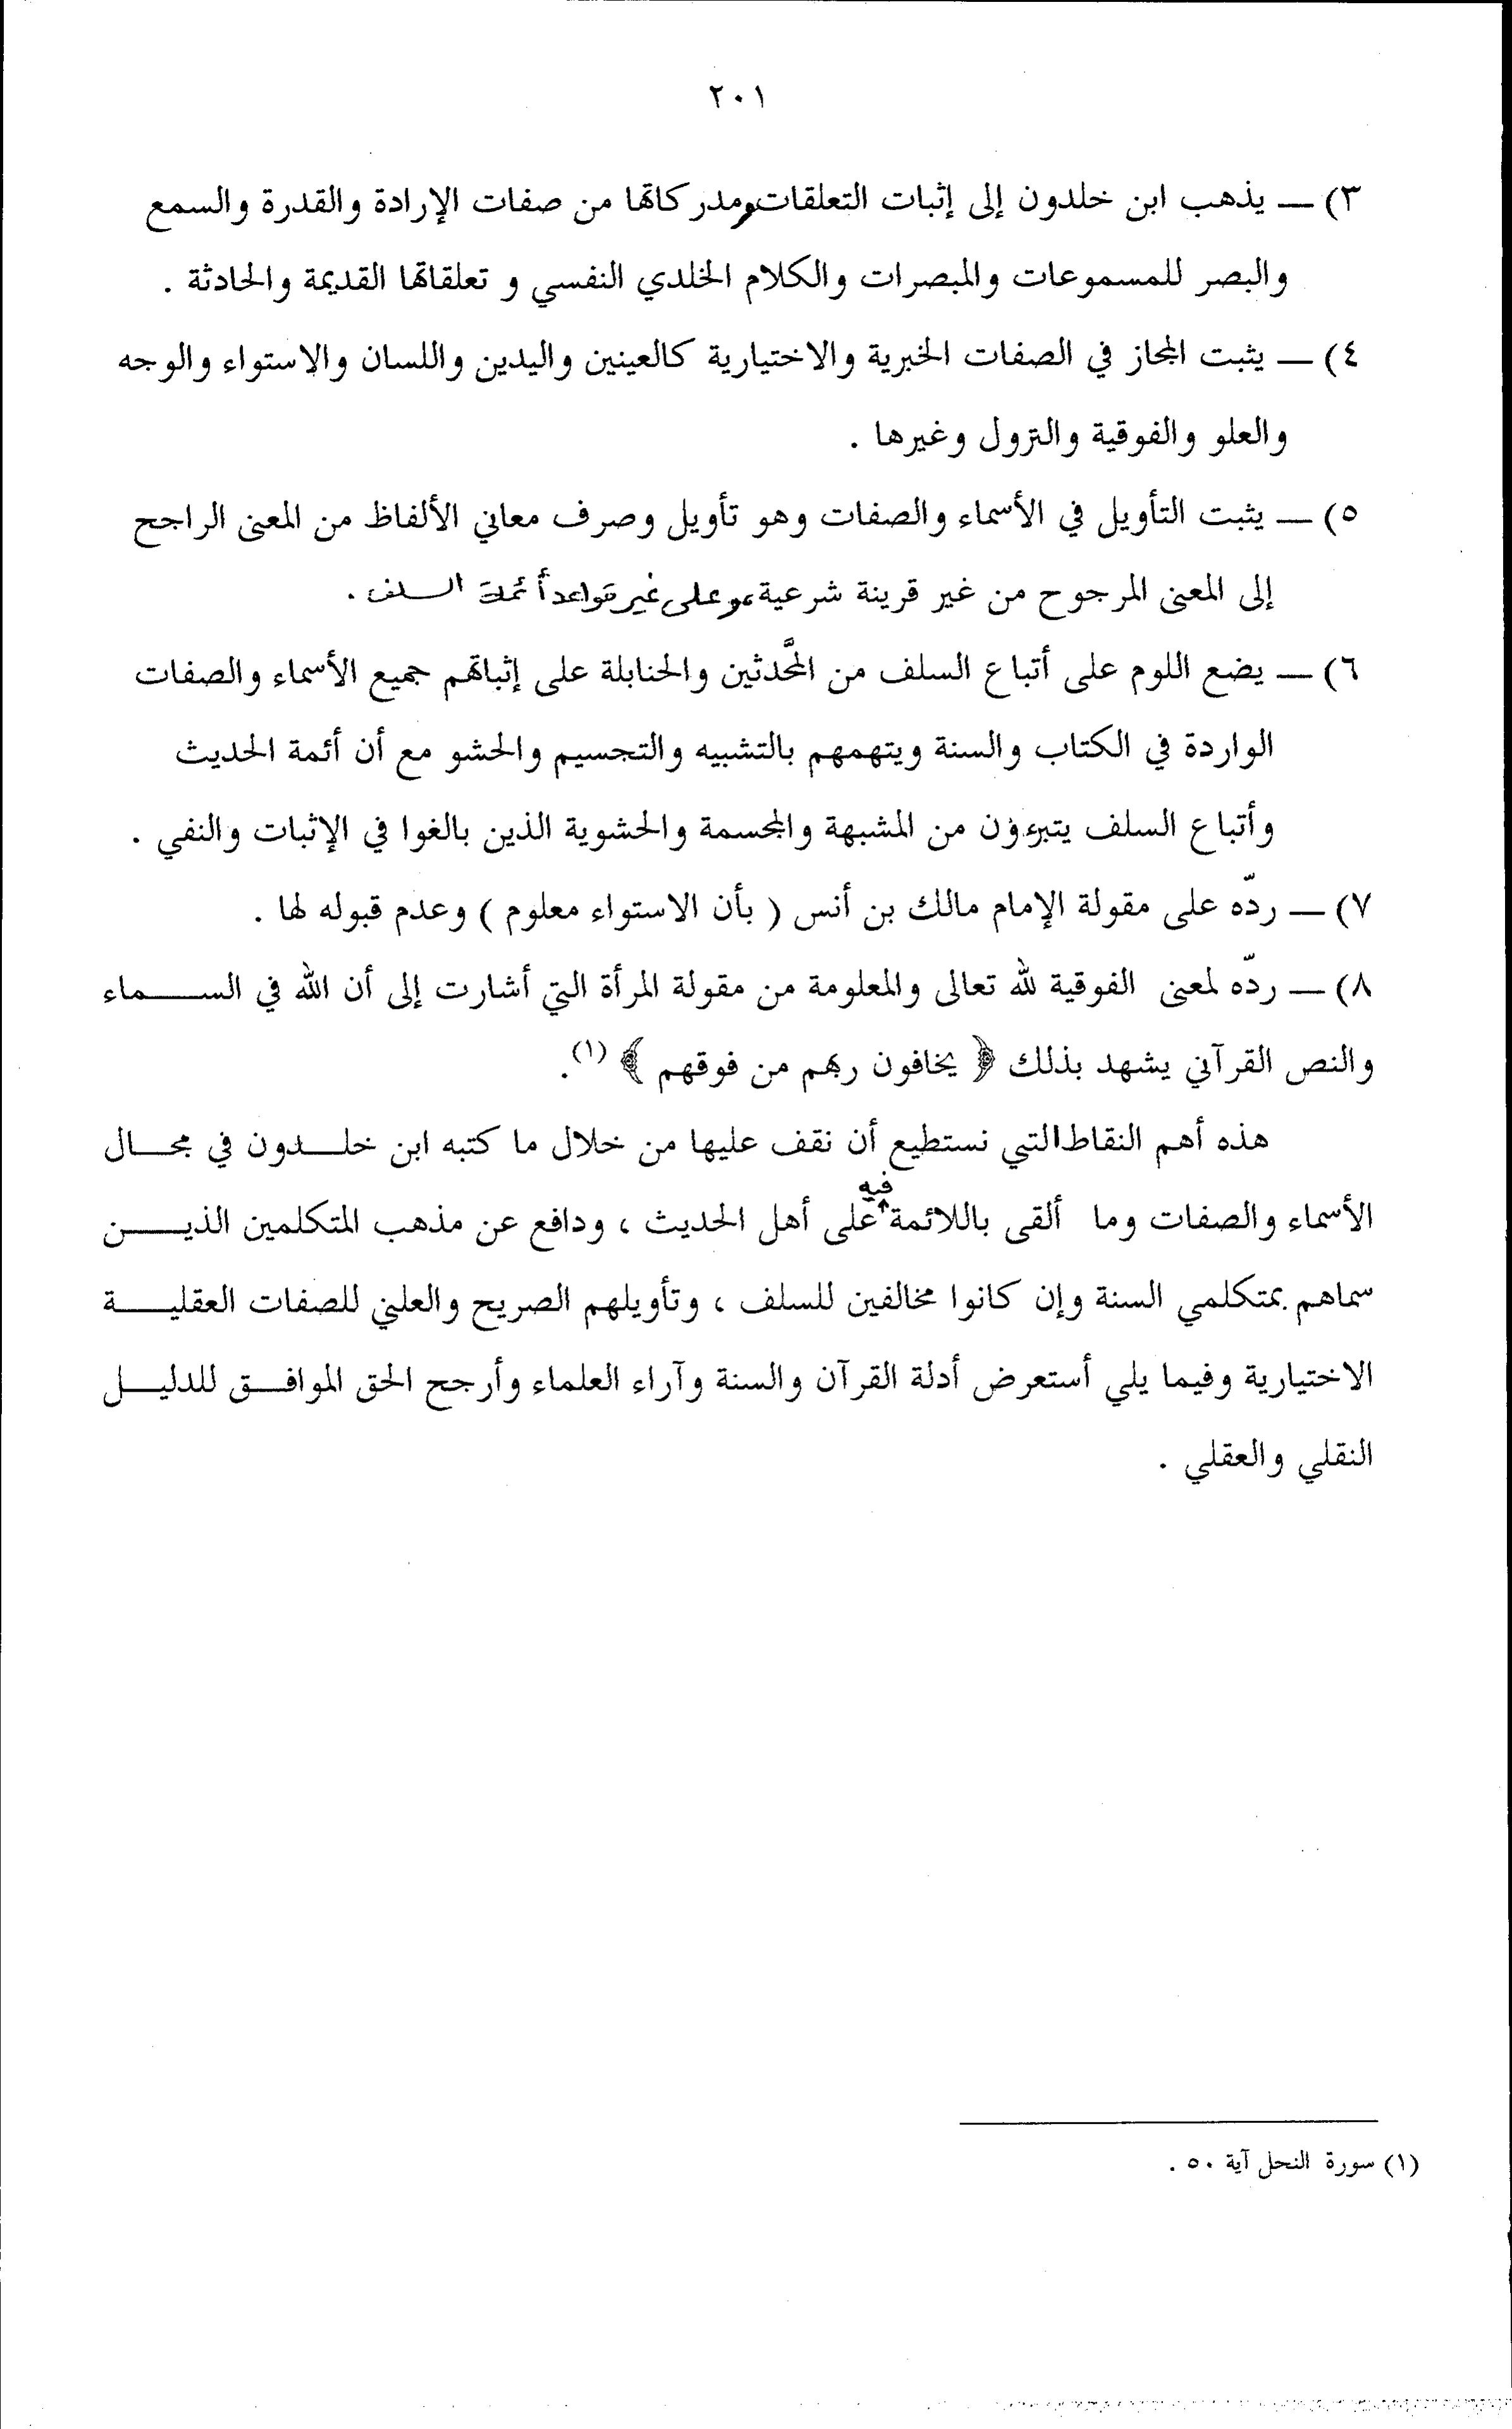 ٢٠١
٣) — يذهب ابن خلدون إلى إثبات التعلقات ومدركاتها من صفات الإرادة والقدرة والسمع
والبصر للمسموعات والمبصرات والكلام الخلدي النفسي و تعلقاتها القديمة والحادثة .
٤) — يثبت المجاز في الصفات الخبرية والاختيارية كالعينين واليدين واللسان والاستواء والوجه
والعلو والفوقية والنزول وغيرها .
٥) — يثبت التأويل في الأسماء والصفات وهو تأويل وصرف معاني الألفاظ من المعنى الراجح
إلى المعنى المرجوح من غير قرينة شرعية وعلى غير قواعد أئمة السلف .
٦) — يضع اللوم على أتباع السلف من المحَّدثين والحنابلة على إثباتهم جميع الأسماء والصفات
الواردة في الكتاب والسنة ويتهمهم بالتشبيه والتجسيم والحشو مع أن أئمة الحديث
وأتباع السلف يتبرءؤن من المشبهة والمجسمة والحشوية الذين بالغوا في الإثبات والنفي .
٧) — ردّه على مقولة الإمام مالك بن أنس ( بأن الاستواء معلوم ) وعدم قبوله لها .
٨) — ردّه لمعنى الفوقية لله تعالى والمعلومة من مقولة المرأة التي أشارت إلى أن الله في الســـماء
والنص القرآني يشهد بذلك ﴿ يخافون ربهم من فوقهم ﴾ (١).
هذه أهم النقاط التي نستطيع أن نقف عليها من خلال ما كتبه ابن خلـــدون في مجـــال
الأسماء والصفات وما ألقى باللائمة فيه على أهل الحديث ، ودافع عن مذهب المتكلمين الذيـــن
سماهم بمتكلمي السنة وإن كانوا مخالفين للسلف ، وتأويلهم الصريح والعلني للصفات العقليـــة
الاختيارية وفيما يلي أستعرض أدلة القرآن والسنة وآراء العلماء وأرجح الحق الموافـــق للدليـــل
النقلي والعقلي .
(١) سورة النحل آية ٥٠ .